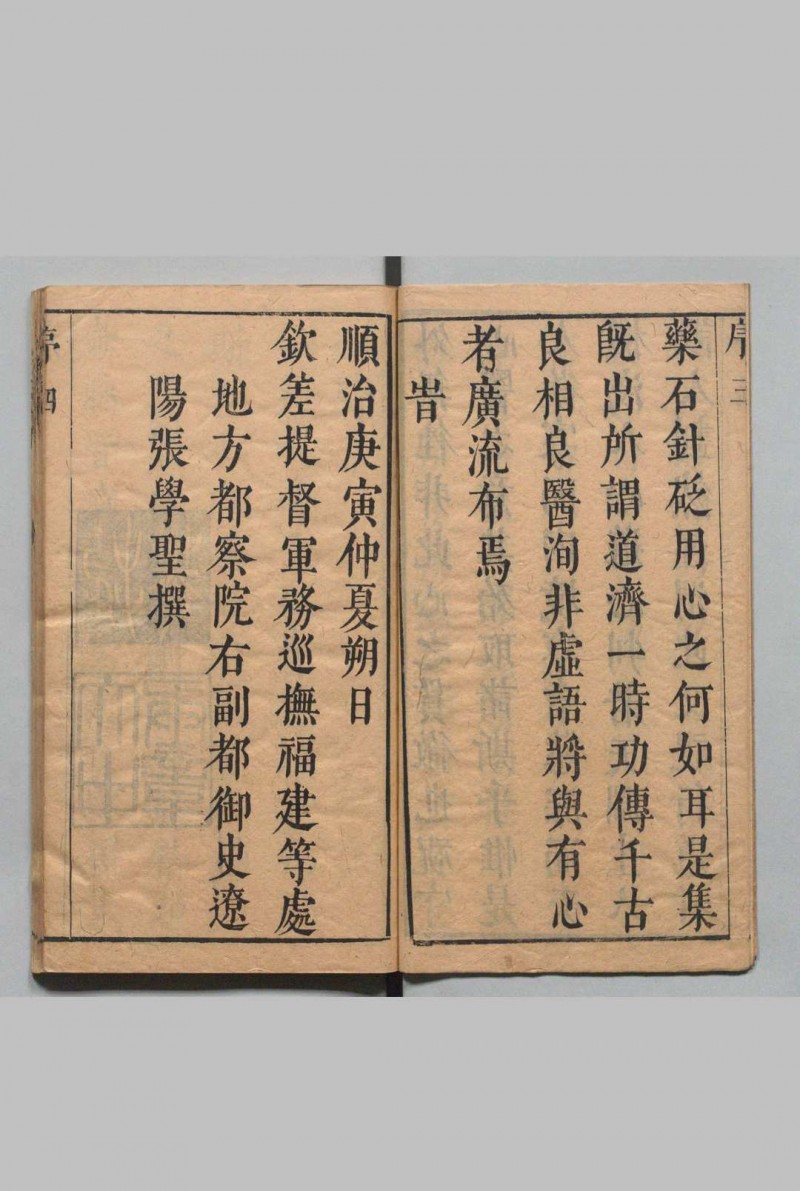 序三
藥石針砭用心之何如耳是集
既出所謂道濟一時功傳千古
良相良醫洵非虛語將與有心
者廣流布焉
旹
順治庚寅仲夏朔日
欽差提督軍務巡撫福建等處
地方都察院右副都御史遼
陽張學聖撰
序四